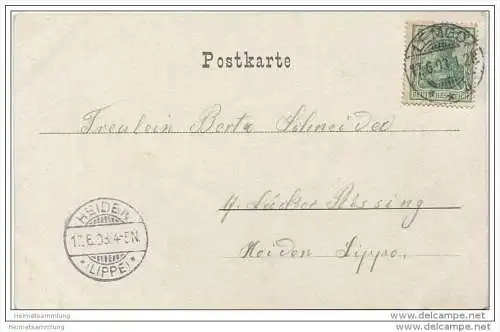 LEMGO
17.6.03.
DEUTSCHES REICH
Postkarte
Fräulein Berta Schneider
Heiden Lippe.
HEIDEN
17.6.03.4-5N.
*(LIPPE)*
Heimatsammlung
Heimatsammlung
delcampe.net